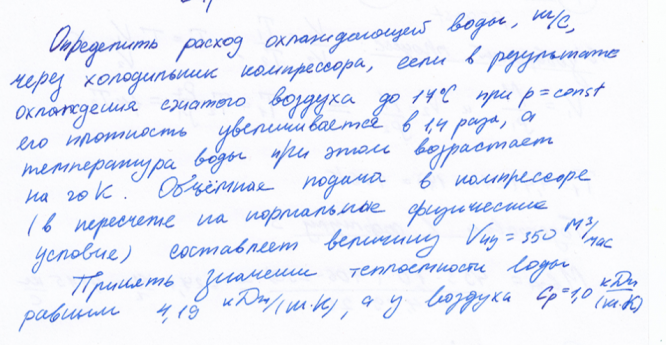 Определить расход охлаждающей воды, кг/с,
через холодильник компрессора, если в результате
охлаждения сжатого воздуха до 17°C при p = const
его плотность увеличивается в 1,4 раза, а
температура воды при этом возрастает
на 20 К. Объёмная подача в компрессоре
(в пересчете на нормальные физические
условие) составляет величину Vну = 350 м³/час
Принять значение теплоемкости воды
равным 4,19 кДж/(кг·К), а у воздуха Cp = 1,0 кДж/(кг·К)